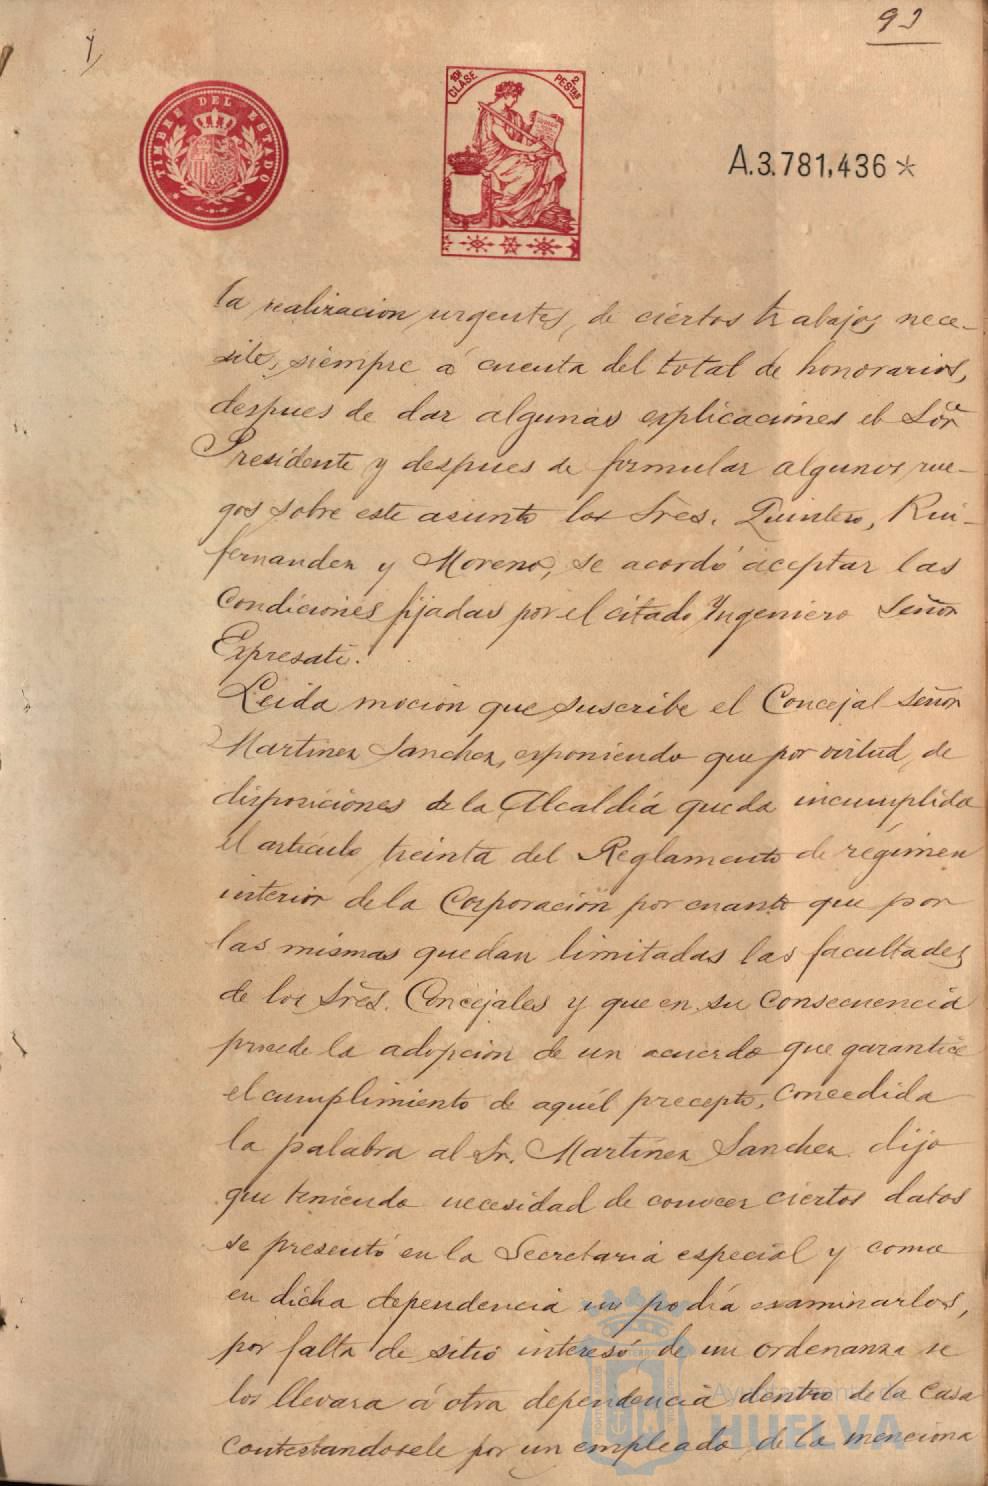 93
TIMBRE DEL ESTADO
10ª CLASE 2 PESETAS
A.3.781,436 *
la realizacion urgentes, de ciertos trabajos nece-
site, siempre á cuenta del total de honorarios,
despues de dar algunas explicaciones el Sor
Presidente y despues de formular algunos rue-
gos sobre este asunto los Sres. Quintero, Rui-
fernandez y Moreno, se acordó aceptar las
Condiciones fijadas por el citado Yngeniero Señor
Expresati.
Leida mocion que suscribe el Concejal señor
Martinez Sanchez, exponiendo que por virtud, de
disposiciones de la Alcaldía queda incumplida
el artículo treinta del Reglamento de régimen
interior de la Corporación por cuanto que por
las mismas quedan limitadas las facultades
de los Sres. Concejales y que en su consecuencia
procede la adopción de un acuerdo que garantice
el cumplimiento de aquél precepto, concedida
la palabra al Sr. Martinez Sanchez dijo
que teniendo necesidad de conocer ciertos datos
se presentó en la Secretaria especial y como
en dicha dependencia no podía examinarlos,
por falta de sitio interesó de un ordenanza se
los llevara á otra dependencia dentro de la Casa
contestandosele por un empleado de la menciona
Ayuntamiento de
HUELVA